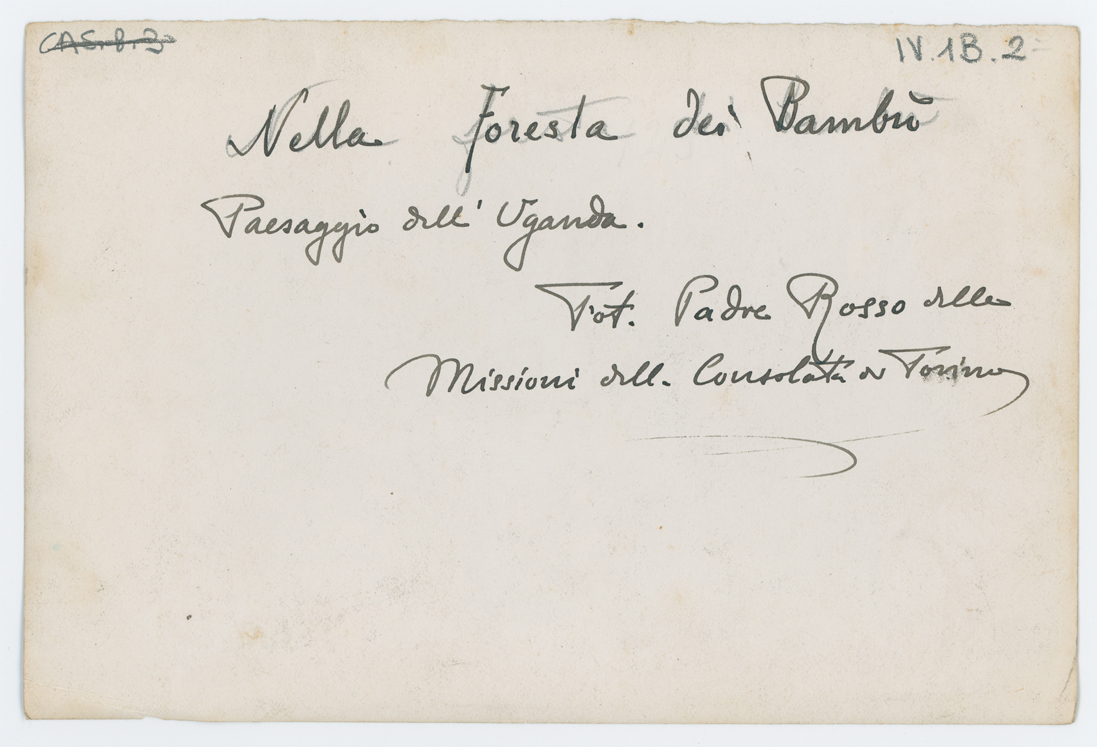 CAS. 8. 3
IV. 1B. 2
Nella Foresta dei Bambù
Paesaggio dell' Uganda.
Fot. Padre Rosso delle
Missioni della Consolata di Torino